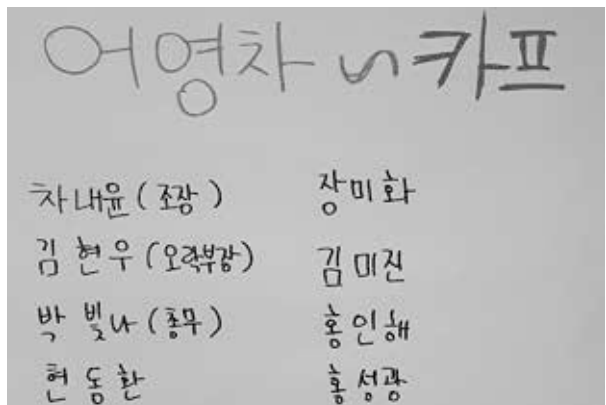 어영차 in 카프
차내윤 (조장)
김현우 (오락부장)
박빛나 (총무)
현동환
장미화
김미진
홍인해
홍성광